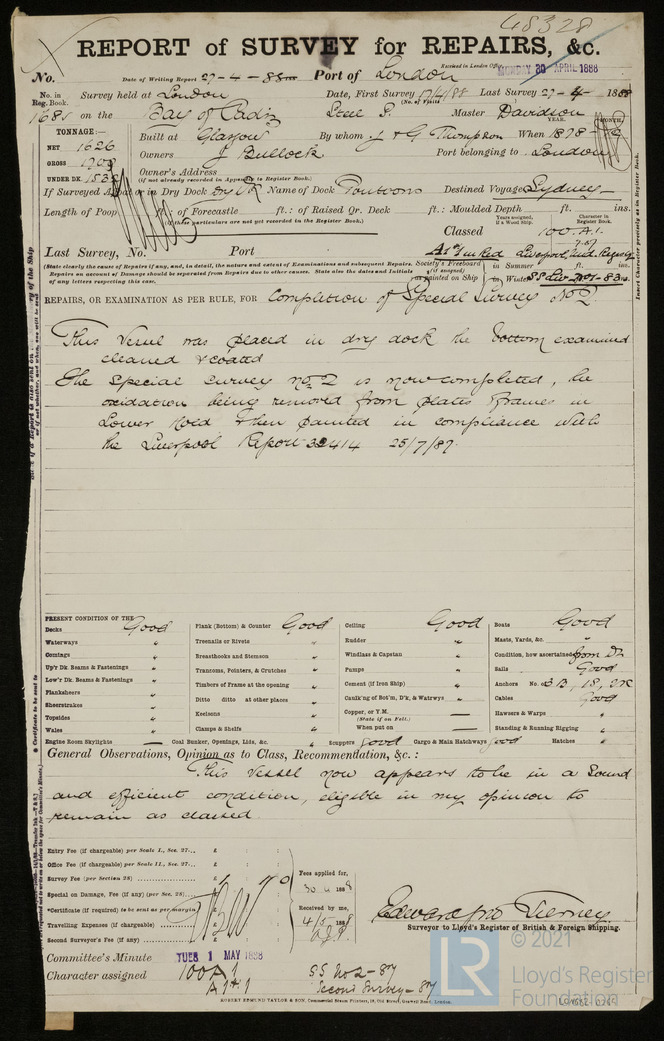 48328
REPORT of SURVEY for REPAIRS, &c.
Received in London Office, MONDAY 30 APRIL 1888
No. Date of Writing Report 27-4-88 Port of London
No. in Reg. Book. Survey held at London Date, First Survey 17/4/88 Last Survey 27-4-1888
(No. of Visits )
168 on the Bay of Cadiz Master Davidson
TONNAGE:— Built at Glasgow By whom J & G Thompson When 1878 YEAR. MONTH.
NET 1626
GROSS 1700 Owners J Bullock Port belonging to London
UNDER DK. 1532 Owner's Address
(if not already recorded in Appendix to Register Book.)
If Surveyed Afloat or in Dry Dock Dry Dk Name of Dock Pontoons Destined Voyage Sydney
Length of Poop ft.; of Forecastle ft.; of Raised Qr. Deck ft.; Moulded Depth ft. ins.
(if these particulars are not yet recorded in the Register Book.)
Years assigned, if a Wood Ship. Character in Register Book.
Classed 100.A.1.
Last Survey, No. Port
(State clearly the cause of Repairs if any, and, in detail, the nature and extent of Examinations and subsequent Repairs.
Repairs on account of Damage should be separated from Repairs due to other causes. State also the dates and Initials
of any letters respecting this case.
Society's Freeboard (if assigned) as painted on Ship in Summer ft. ins. in Winter
REPAIRS, OR EXAMINATION AS PER RULE, FOR Completion of Special Survey No 2
This Vessel was placed in dry dock the bottom examined
cleaned & coated
The Special Survey no 2 is now completed, the
oxidation being removed from plates frames in
Lower Hold & then painted in compliance with
the Liverpool Report 32414 25/7/87.
PRESENT CONDITION OF THE
Decks Good
Waterways "
Comings "
Up'r Dk. Beams & Fastenings "
Low'r Dk. Beams & Fastenings "
Planksheers "
Sheerstrakes "
Topsides "
Wales "
Engine Room Skylights —
Plank (Bottom) & Counter Good
Treenails or Rivets "
Breasthooks and Stemson "
Transoms, Pointers, & Crutches "
Timbers of Frame at the opening "
Ditto ditto at other places "
Keelsons "
Clamps & Shelfs "
Coal Bunker, Openings, Lids, &c. "
Ceiling Good
Rudder "
Windlass & Capstan "
Pumps "
Cement (if Iron Ship) "
Caulk'ng of Bot'm, D'k, & Watrwys "
Copper, or Y.M. —
(State if on Felt.)
When put on —
Scuppers Good Cargo & Main Hatchways Good
Boats Good
Masts, Yards, &c. "
Condition, how ascertained from Dk
Sails Good
Anchors No. of 3 B, 1 S, 2 K
Cables Good
Hawsers & Warps "
Standing & Running Rigging "
Hatches "
General Observations, Opinion as to Class, Recommendation, &c.:
This Vessel now appears to be in a Sound
and efficient condition, eligible in my opinion to
remain as classed.
Entry Fee (if chargeable) per Scale I., Sec. 27... £ : :
Office Fee (if chargeable) per Scale II., Sec. 27... £ : :
Survey Fee (per Section 28)
Special on Damage, Fee (if any) (per Sec. 28) £ : :
*Certificate (if required) to be sent as per margin
Travelling Expenses (if chargeable) £ : :
Second Surveyor's Fee (if any) £ : :
Fees applied for,
30.4.1888
Received by me,
4/5 1888
Edward Jno Tierney
Surveyor to Lloyd's Register of British & Foreign Shipping.
Committee's Minute TUES 1 MAY 1888
Character assigned 100A1 SS No 2-87
Second Survey-87
ROBERT EDMUND TAYLOR & SON, Commercial Steam Printers, 19, Old Street, Goswell Road, London.
LR
© 2021
Lloyd's Register
Foundation